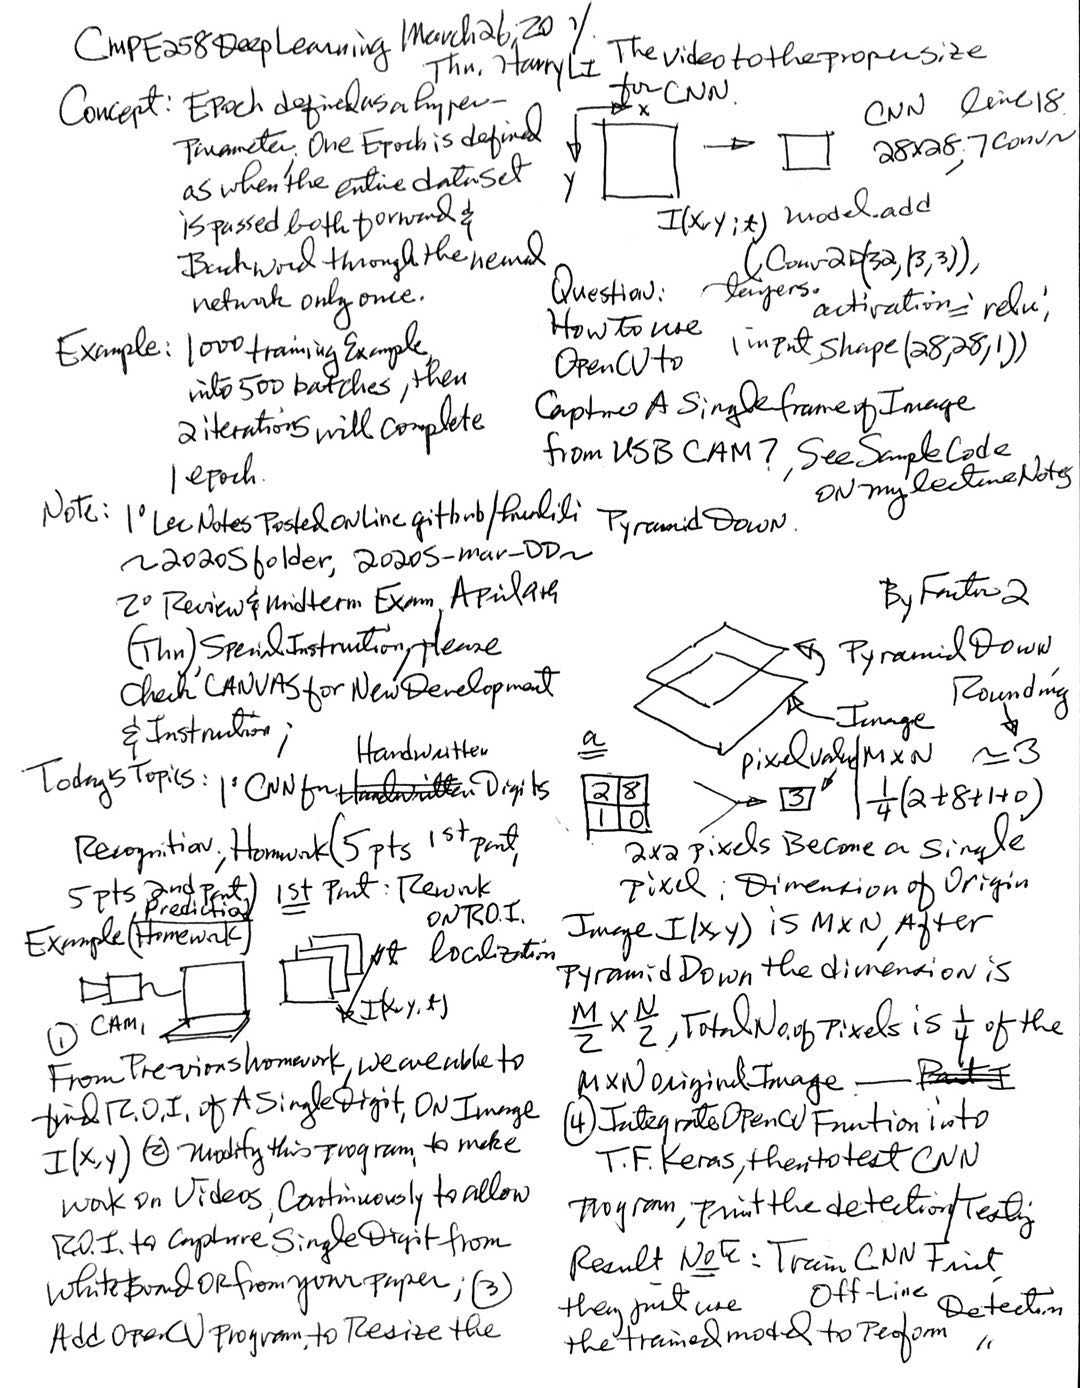 CMPE258 Deep Learning March 26, 20
Thu. Harry Li
Concept: Epoch defined as a hyper-
Parameter. One Epoch is defined
as when the entire dataset
is passed both forward &
Backword through the neural
network only once.
Example: 1000 training Example,
into 500 batches, then
2 iterations will complete
1 epoch.
Note: 1° Lec Notes Posted on Line github/
~2020S folder, 2020S-mar-DD~
2° Review & midterm Exam, April 9th
(Thu), Special Instruction, please
check CANVAS for New Development
& Instruction;
Today's Topics: 1° CNN for Handwritten Digits
Recognition; Homwork (5 pts 1st part,
5 pts 2nd part) 1st Part: Rework
Prediction on R.O.I.
Example (Homework) localization
t
I(x,y,t)
CAM,
① From Previous homework, we are able to
find R.O.I. of A Single Digit, ON Image
I(x,y) ② Modify this program, to make
work on Videos, Continuously to allow
R.O.I. to capture Single Digit from
White Board OR from your paper; ③
Add OpenCV program, to Resize the
The video to the proper size
for CNN.
x
y
CNN line 18.
28x28, 7 Conv~
I(x,y;t) model.add
(Conv2D(32, (3,3)),
layers.
activation='relu',
input shape (28,28,1))
Question:
How to use
OpenCV to
Capture A Single frame of Image
from USB CAM?, See Sample Code
ON my lecture Notes
Pyramid Down.
By Factor 2
Pyramid Down,
Rounding
Image
a
pixel value MxN ≃3
2 8
1 0
3
1/4(2+8+1+0)
2x2 pixels Become a single
pixel; Dimension of Origin
Image I(x,y) is MxN, After
Pyramid Down the dimension is
M/2 x N/2, Total No. of Pixels is 1/4 of the
MxN original Image — Part I
④ Integrate OpenCV Funtion into
T.F. Keras, then to test CNN
program, print the detection/Testing
Result Note: Train CNN First,
Off-Line
they just use Detection
the trained model to Peoform "